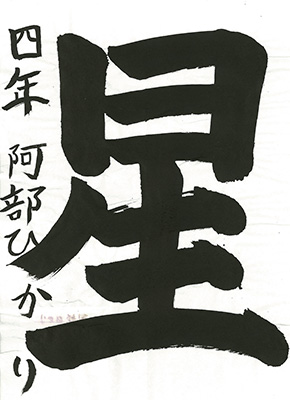 星
四年 阿部ひかり